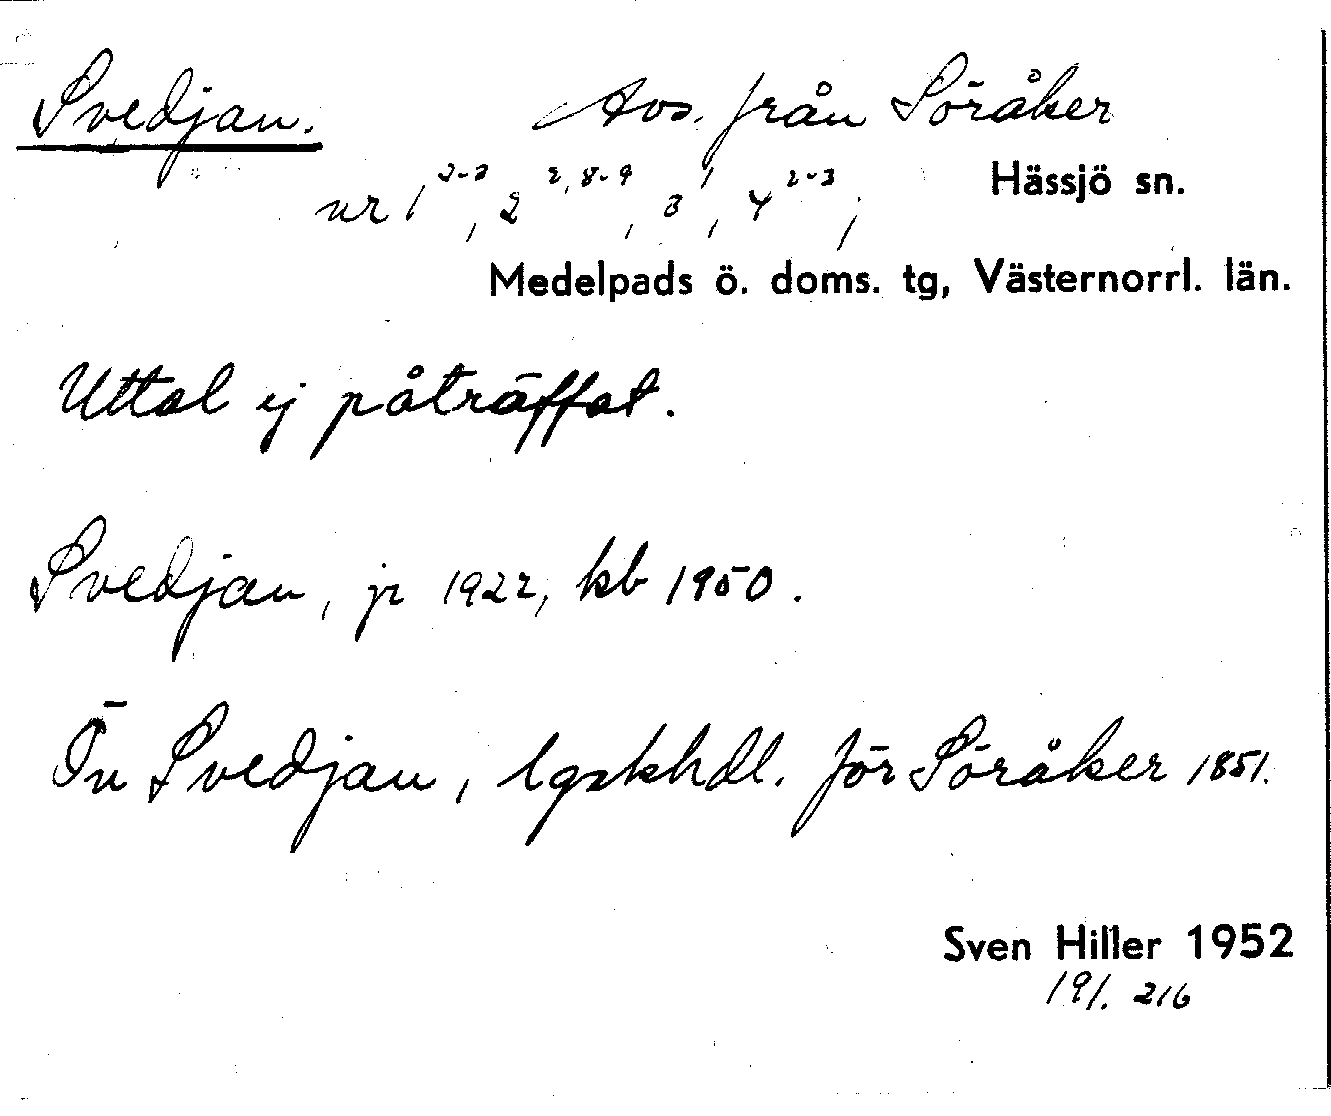 Svedjan. Avs. från Söråker
nr 1²⁻³, 2²,⁸⁻⁹, 3¹, 4²⁻³, Hässjö sn.
Medelpads ö. doms. tg, Västernorrl. län.
Uttal ej påträffat.
Svedjan, jr 1922, kb 1950.
Ön Svedjan, lgskhdl. för Söråker 1851.
Sven Hiller 1952
191. 216